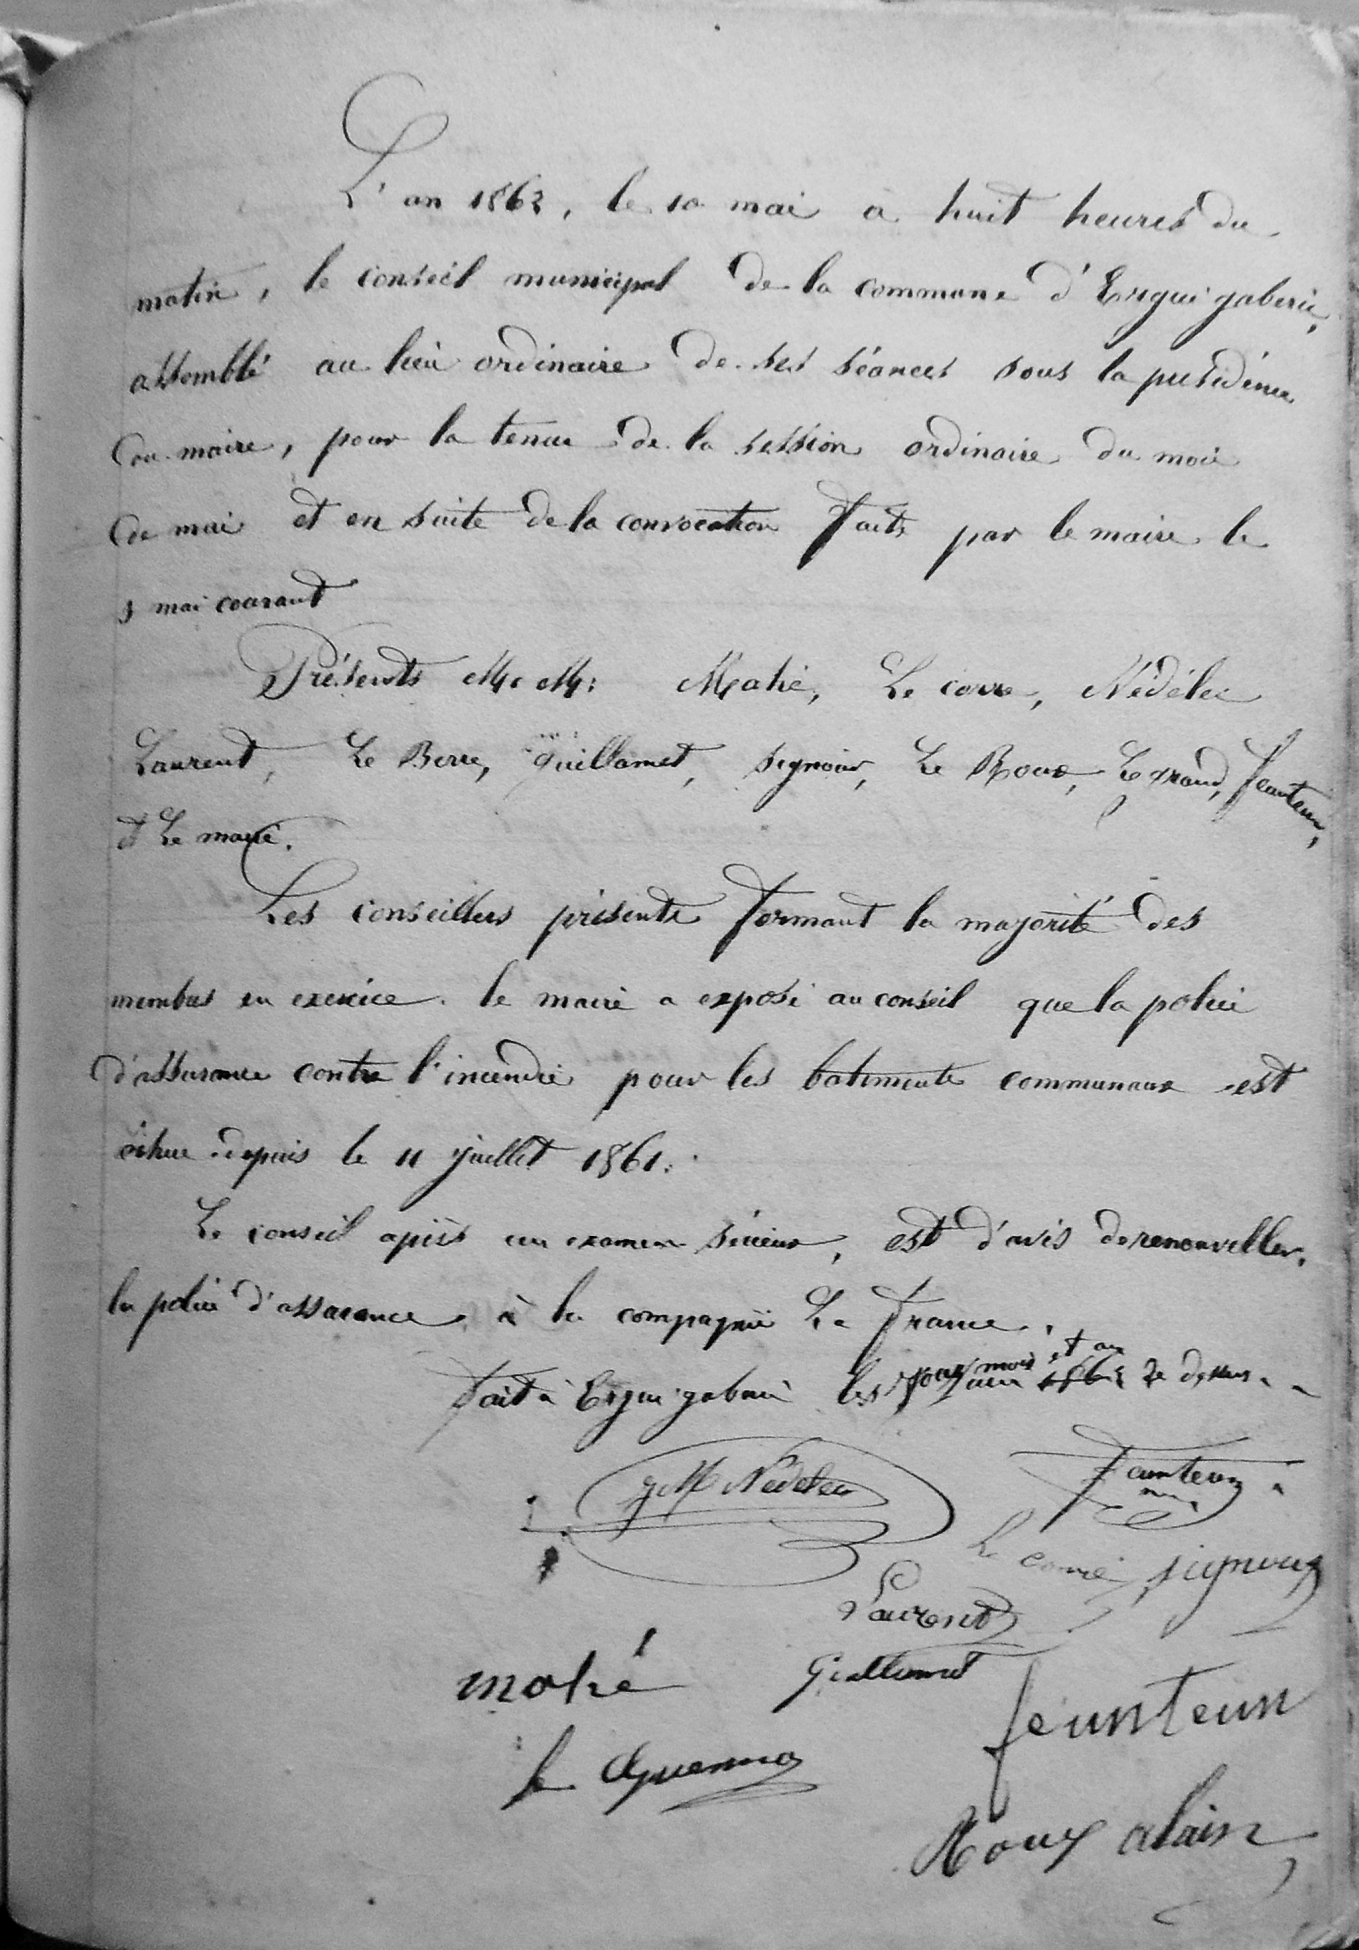 L'an 1862, le 10 mai à huit heures du
matin, le conseil municipal de la commune d'Ergué gabéric,
assemblé au lieu ordinaire de ses séances sous la présidence
du maire, pour la tenue de la session ordinaire du mois
de mai et en suite de la convocation faite par le maire le
mai courant
Présents MM: Mahé, Le corre, Nédélec
Laurent, Le Berre, guillamet, signour, Le Roux, Le grand, feunteun,
et Le maire.
Les conseillers présents formant la majorité des
membres en exercice. le maire a exposé au conseil que la police
d'assurance contre l'incendie pour les batiments communaux est
échue depuis le 11 juillet 1861.
Le conseil après un examen sérieux, est d'avis de renouveller
la police d'assurance à la compagnie La france.
fait à Ergué gabéric les jour mois et an ci dessus
J M Nédelec
faunteun
Le corre signour
Laurent
mahé
Guillamet
feunteun
Le Guenno
Roux alain